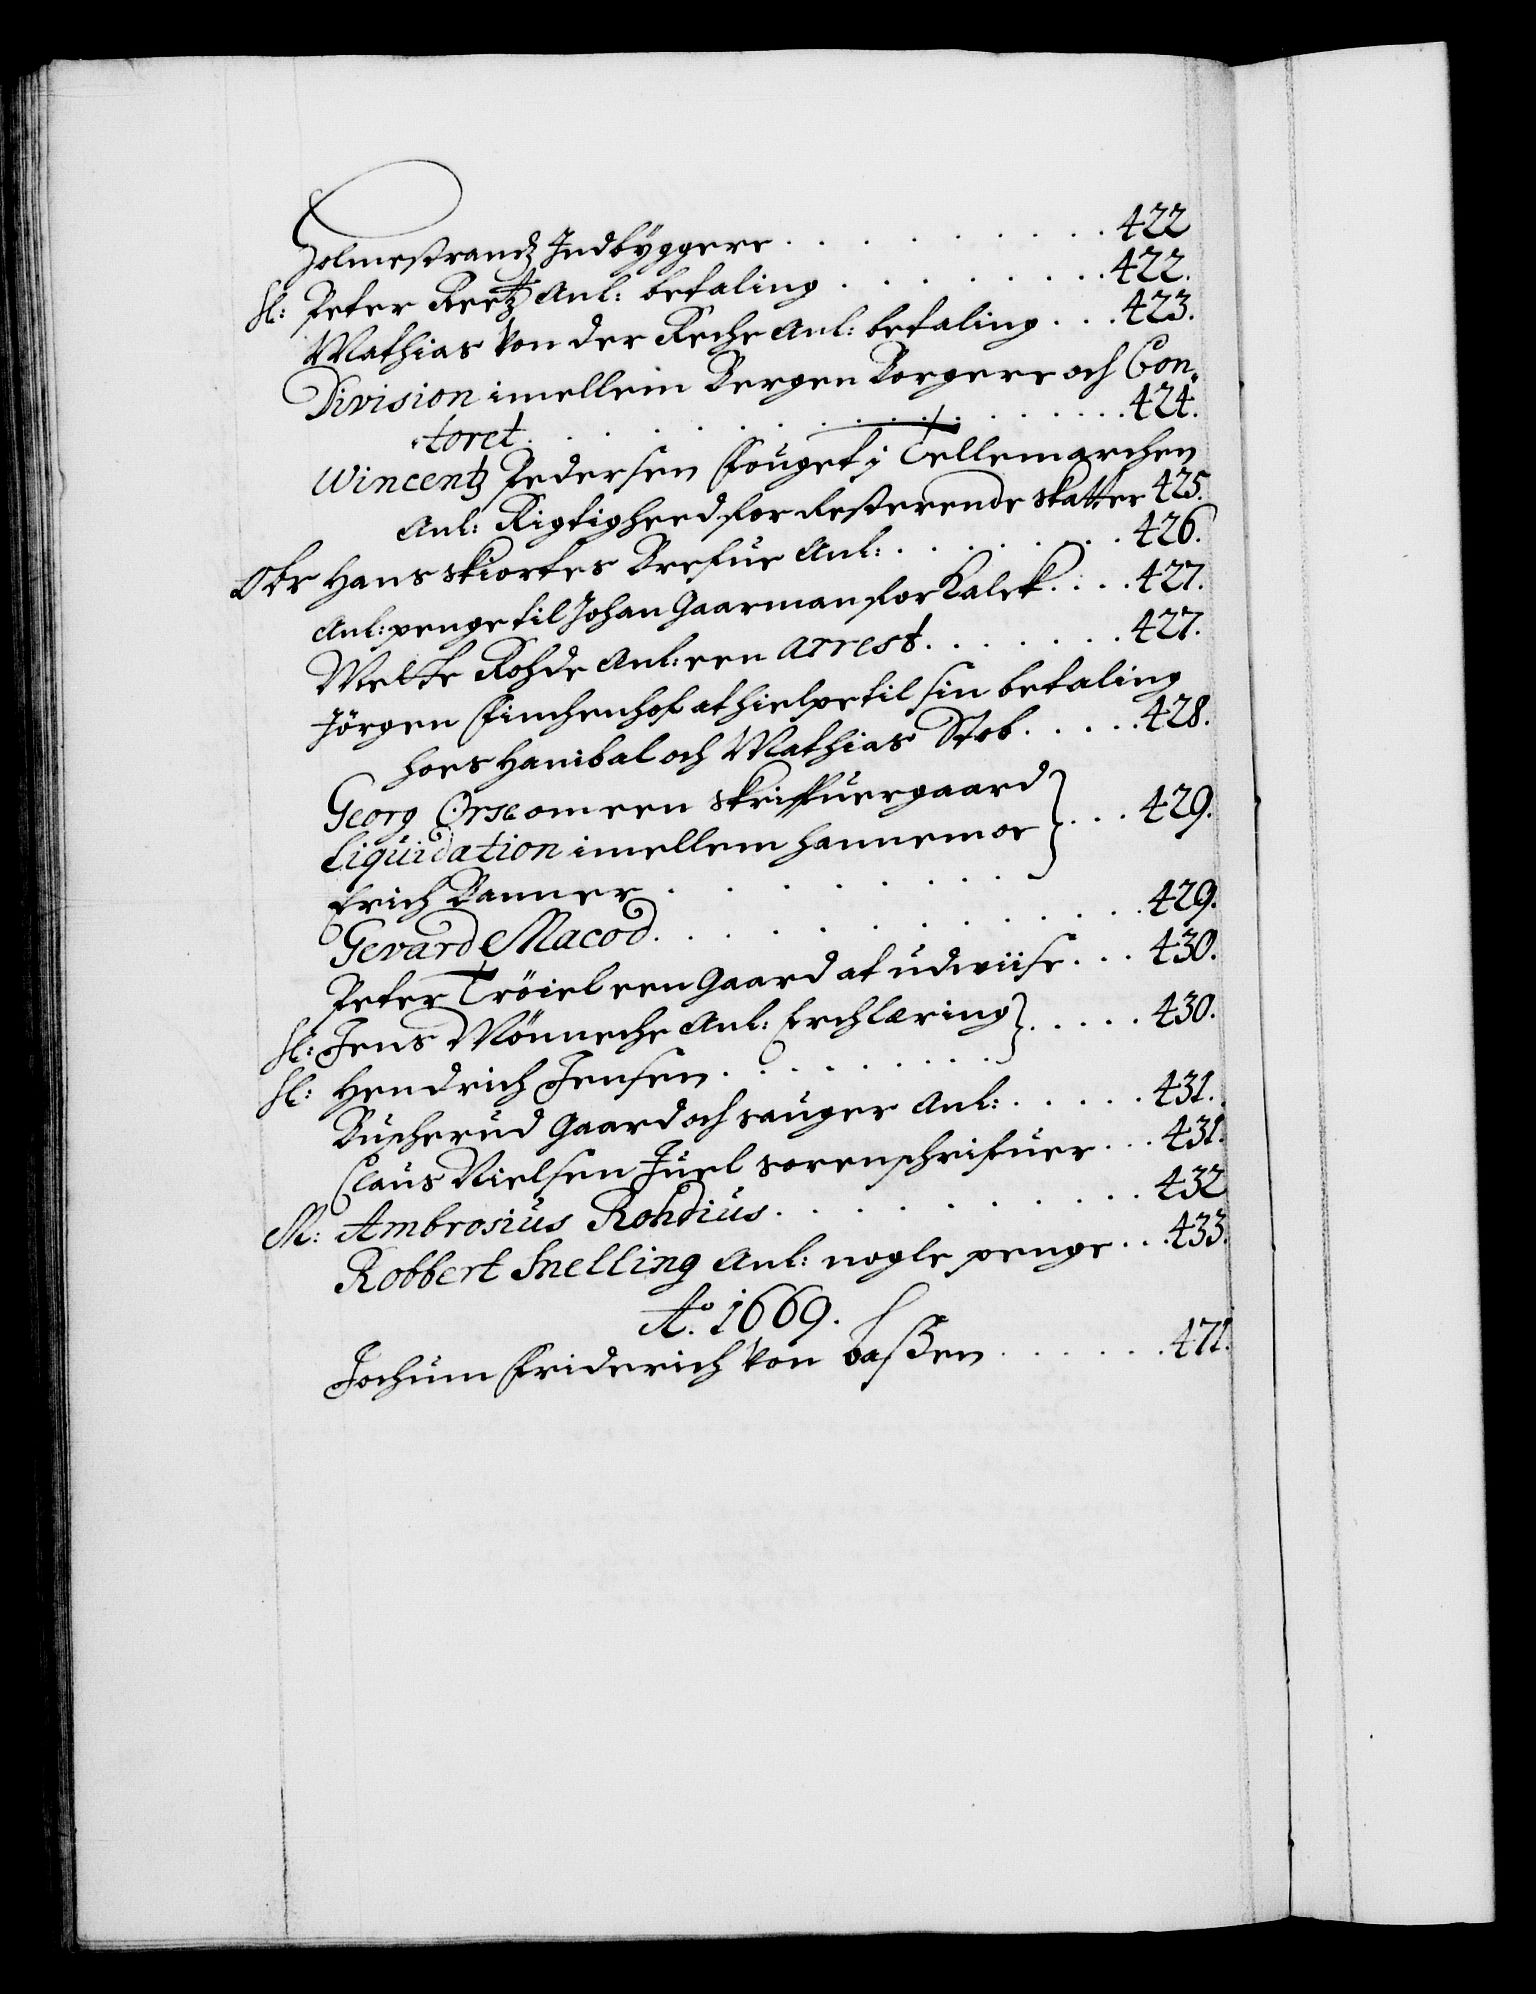 Holmestrandz Indbÿggere . . . . . . . . . 422
Sl: Peter Reetz Anl: betaling . . . . . . . 422.
Mathias von der Reche Anl: betaling . . . 423.
Division imellem Bergen Borgere och Con-
toret . . . . . . . . . . . . . 424.
Wincentz Pedersen Fouget i Tellemarchen
Anl: Rigtigheed for Resterende skatter 425.
Obr Hans skiortes Brefue Anl: . . . . . . 426.
Anl: penge til Johan Gaarman for Kalck . . . . 427.
Mette Rohde Anl: een Arrest . . . . . . . 427.
Jörgen Finchenhof at hielpe til sin betaling
hoes Hanibal och Mathias Stob . . . . . 428.
Georg Orse om een skrifuergaard
Liquidation imellem hannem oc } . . . 429.
Erich Banner . . . . . . . . .
Gevard Macod . . . . . . . . . . . . 429.
Peter Tröiel een Gaard at udwiise . . . 430.
Sl: Jens Mönneche Anl: Erchlæring } . . . . . 430.
Sl: Hendrich Jensen . . . . . . . .
Buscherud Gaard och sauger Anl: . . . . . 431.
Claus Nielsen Juel sorenschrifuer . . . 431.
M: Ambrosius Rohdius . . . . . . . . . 432
Robbert Snelling Anl: nogle penge . . . 433.
Ao. 1669.
Jochum Friderich von Baßen . . . . . . 471.